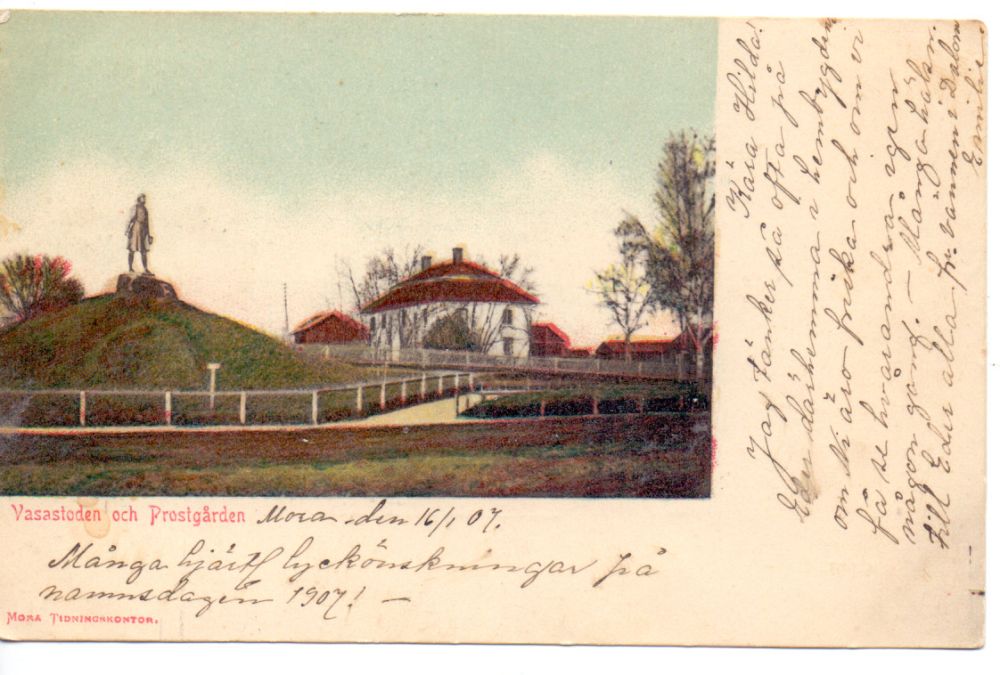 Vasastoden och Prostgården
Mora den 16/1 07.
Många hjärtl lyckönskningar på
namnsdagen 1907! —
MORA TIDNINGSKONTOR.
Kära Hilda!
Jag tänker så ofta på
Eder därhemma i hembygden
om Ni äro friska och om vi
få se hvarandra igen
någon gång. — Många häls.
till Eder alla fr. vännen i Dalom
Emilie